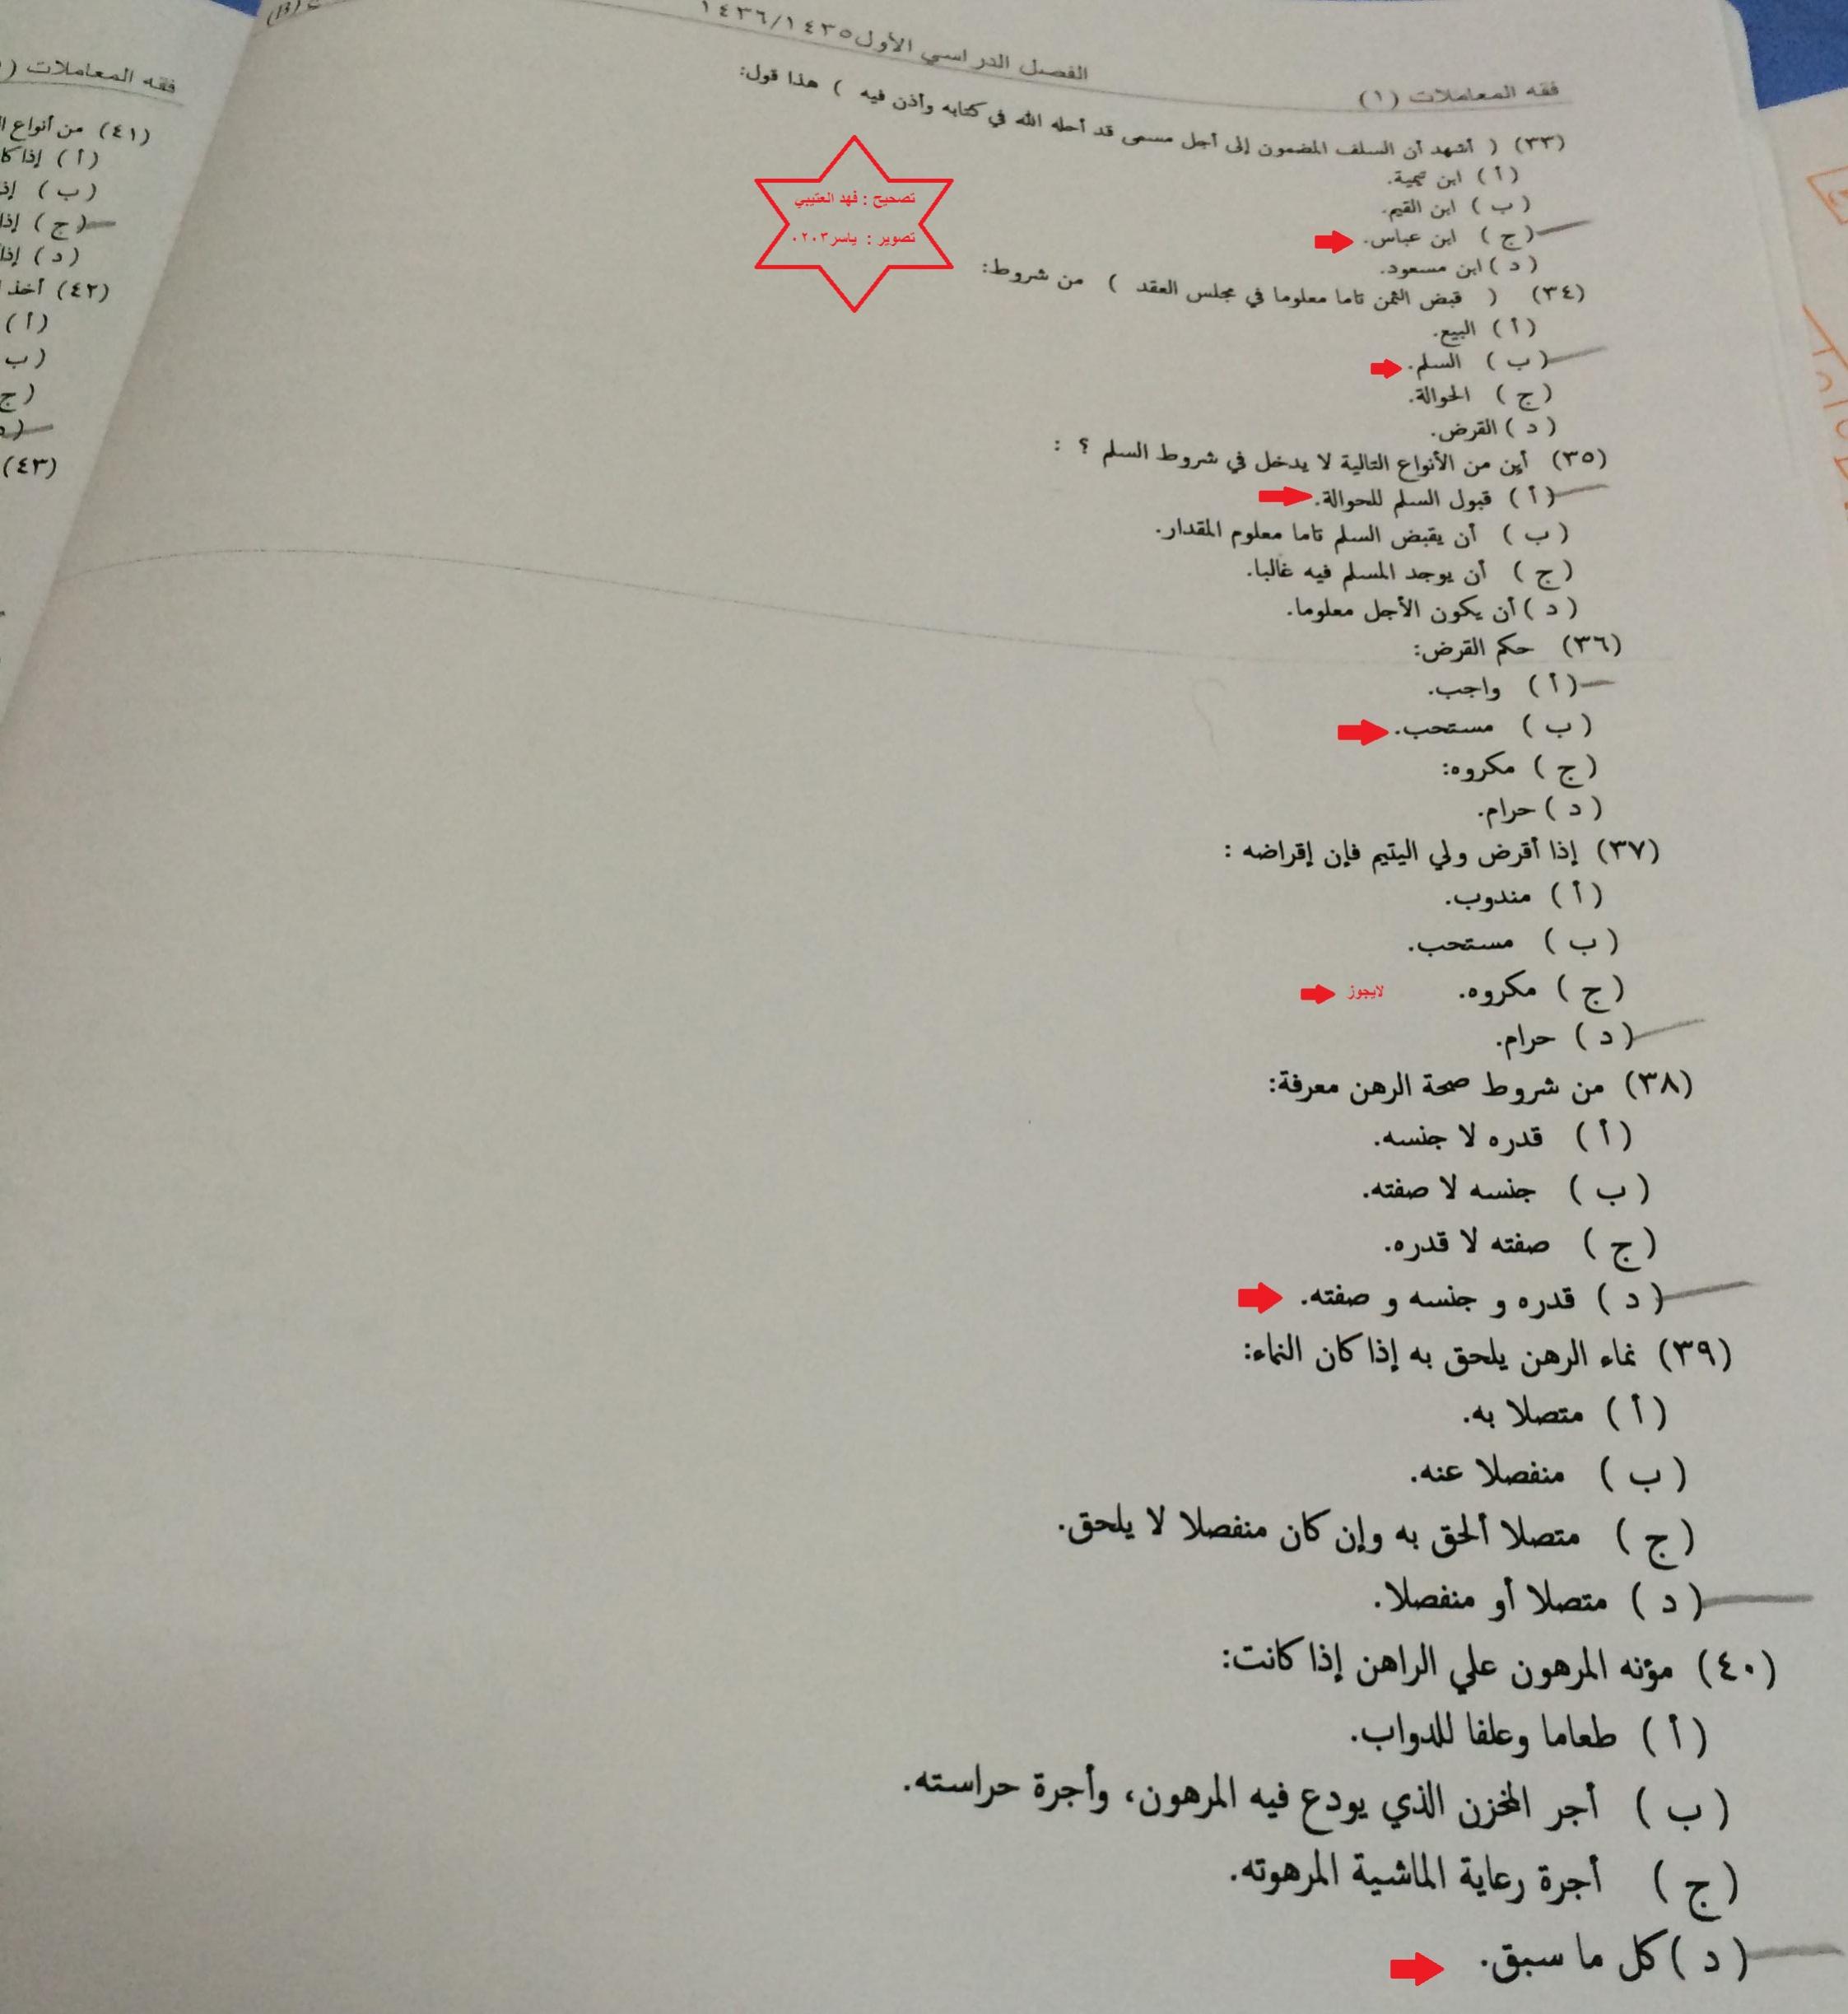 فقه المعاملات (١)
الفصل الدراسي الأول١٤٣٥/١٤٣٦
(B)
(٣٣) ( أشهد أن السلف المضمون إلى أجل مسمى قد أحله الله في كتابه وأذن فيه ) هذا قول:
( أ ) ابن تيمية.
( ب ) ابن القيم.
( ج ) ابن عباس.
( د ) ابن مسعود.
(٣٤) ( قبض الثمن تاما معلوما في مجلس العقد ) من شروط:
( أ ) البيع.
( ب ) السلم.
( ج ) الحوالة.
( د ) القرض.
(٣٥) أين من الأنواع التالية لا يدخل في شروط السلم ؟ :
( أ ) قبول السلم للحوالة.
( ب ) أن يقبض السلم تاما معلوم المقدار.
( ج ) أن يوجد المسلم فيه غالبا.
( د ) أن يكون الأجل معلوما.
(٣٦) حكم القرض:
( أ ) واجب.
( ب ) مستحب.
( ج ) مكروه:
( د ) حرام.
(٣٧) إذا أقرض ولي اليتيم فإن إقراضه :
( أ ) مندوب.
( ب ) مستحب.
( ج ) مكروه. لايجوز
( د ) حرام.
(٣٨) من شروط صحة الرهن معرفة:
( أ ) قدره لا جنسه.
( ب ) جنسه لا صفته.
( ج ) صفته لا قدره.
( د ) قدره و جنسه و صفته.
(٣٩) نماء الرهن يلحق به إذا كان النماء:
( أ ) متصلا به.
( ب ) منفصلا عنه.
( ج ) متصلا ألحق به وإن كان منفصلا لا يلحق.
( د ) متصلا أو منفصلا.
(٤٠) مؤنه المرهون علي الراهن إذا كانت:
( أ ) طعاما وعلفا للدواب.
( ب ) أجر المخزن الذي يودع فيه المرهون، وأجرة حراسته.
( ج ) أجرة رعاية الماشية المرهوته.
( د ) كل ما سبق.
تصحيح : فهد العتيبي
تصوير : ياسر٠٢٠٣
فقه المعاملات (
(٤١) من أنواع
( أ ) إذا
( ب )
( ج ) إذا
( د ) إذا
(٤٢) أخذ
( أ )
ب )
ج )
(٤٣)